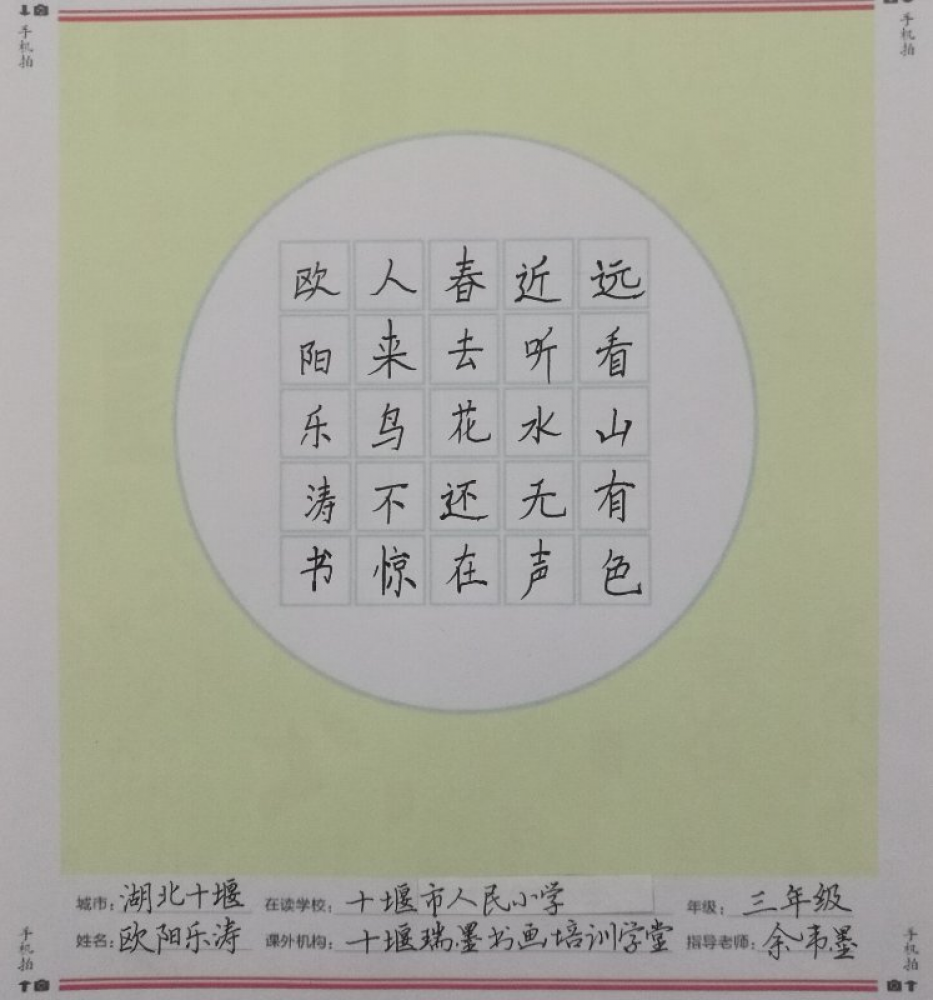 手机拍
手机拍
远看山有色
近听水无声
春去花还在
人来鸟不惊
欧阳乐涛书
城市：湖北十堰 在读学校：十堰市人民小学 年级：三年级
姓名：欧阳乐涛 课外机构：十堰瑞墨书画培训学堂 指导老师：余韦墨
手机拍
手机拍